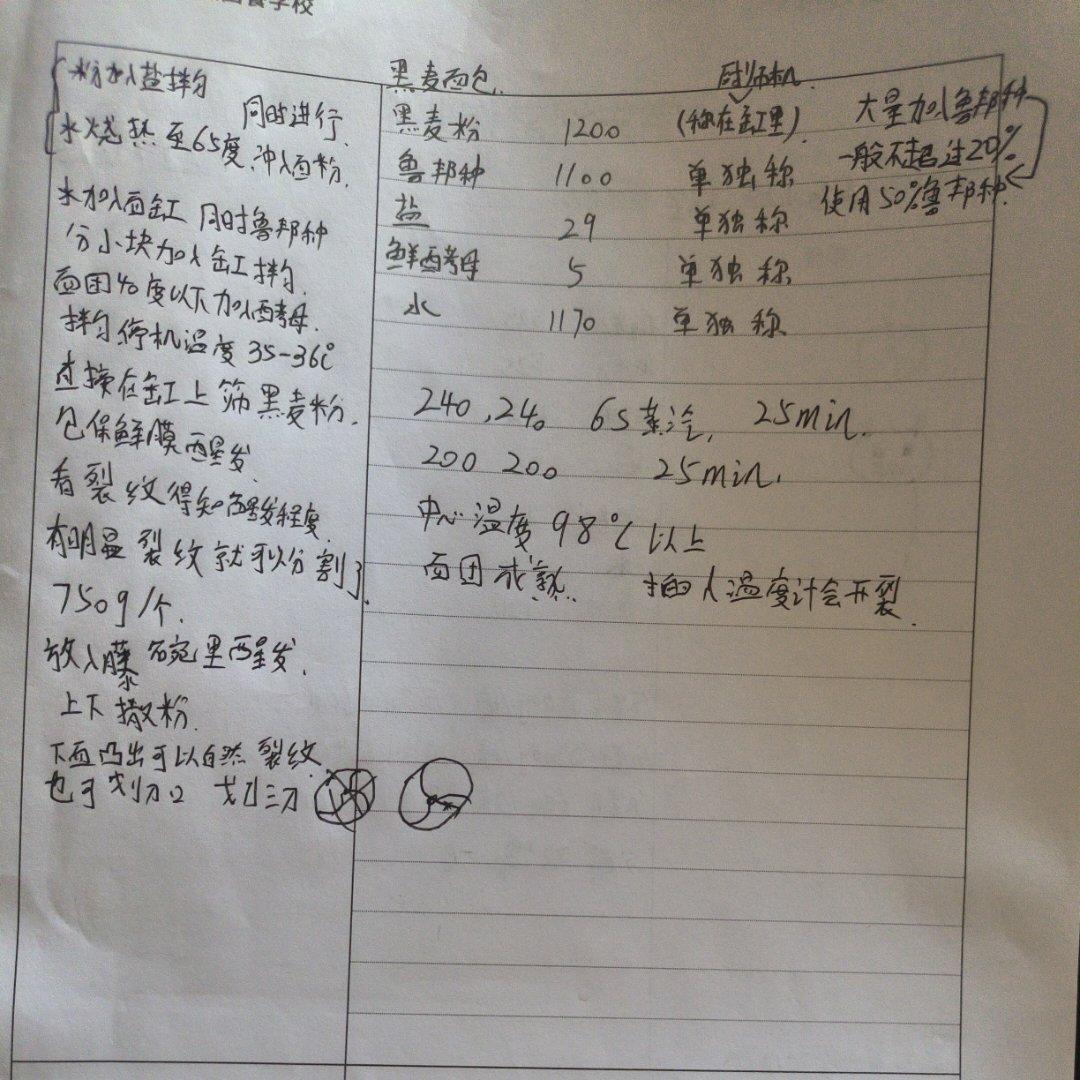 学校
粉加入盐拌匀
同时进行
水烧热至65度冲入面粉.
水加入面缸 同时鲁邦种
分小块加入缸拌匀.
面团40度以下加入酵母.
拌匀停机温度35-36℃
过揍在缸上筛黑麦粉.
包保鲜膜醒发.
看裂纹得知醒发程度.
有明显裂纹就可以分割了.
750g/个.
放入藤碗里醒发.
上下撒粉.
下面凸出可以自然裂纹.
也可划刀口 划三刀
黑麦面包. 厨师机.
黑麦粉 1200 (称在缸里)
鲁邦种 1100 单独称
盐 29 单独称
鲜酵母 5 单独称
水 1170 单独称
大量加入鲁邦种
一般不超过20%.
使用50%鲁邦种.
240,240 6S蒸汽, 25min.
200 200 25min.
中心温度98℃以上
面团成熟. 插入温度计会开裂.